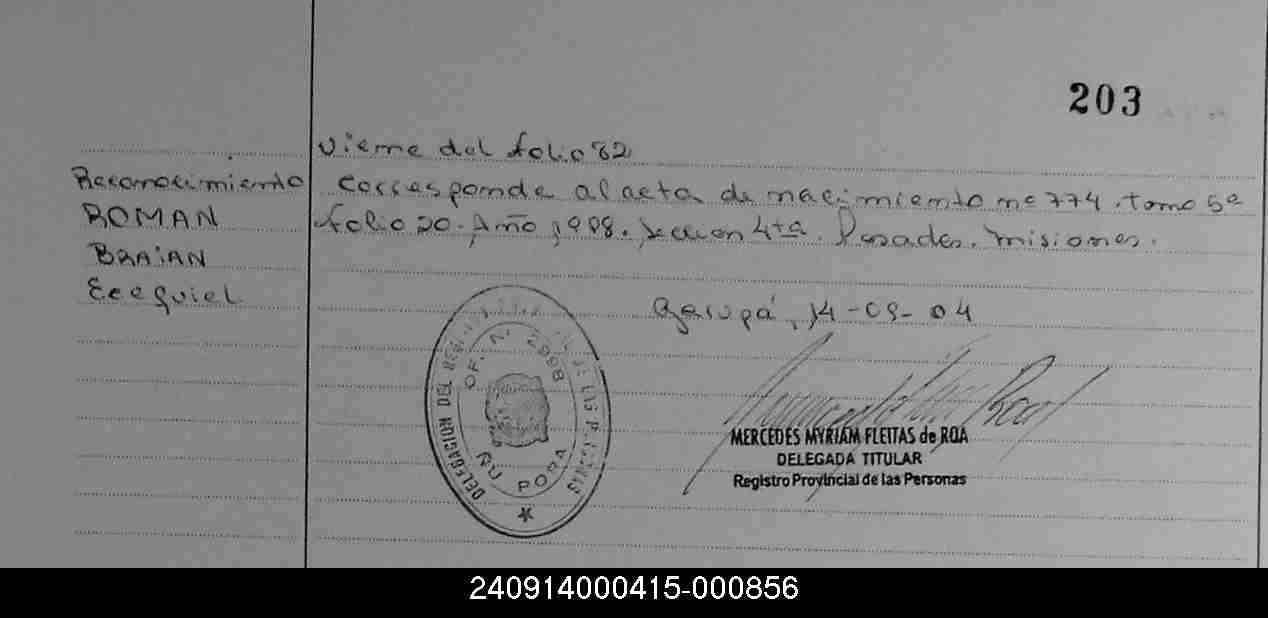 203
Viene del folio 82
Reconocimiento
corresponde al acta de nacimiento nº 774. tomo 5º
ROMAN
folio 20. Año 1998. Seccion 4ta. Posadas. Misiones.
BRAiAN
Ecequiel
Garupá, 14-09-04
DELEGACION DEL REGISTRO DE LAS PERSONAS
OF. Nº 2998
ÑU PORA
MERCEDES MYRIAM FLEITAS de ROA
DELEGADA TITULAR
Registro Provincial de las Personas
240914000415-000856